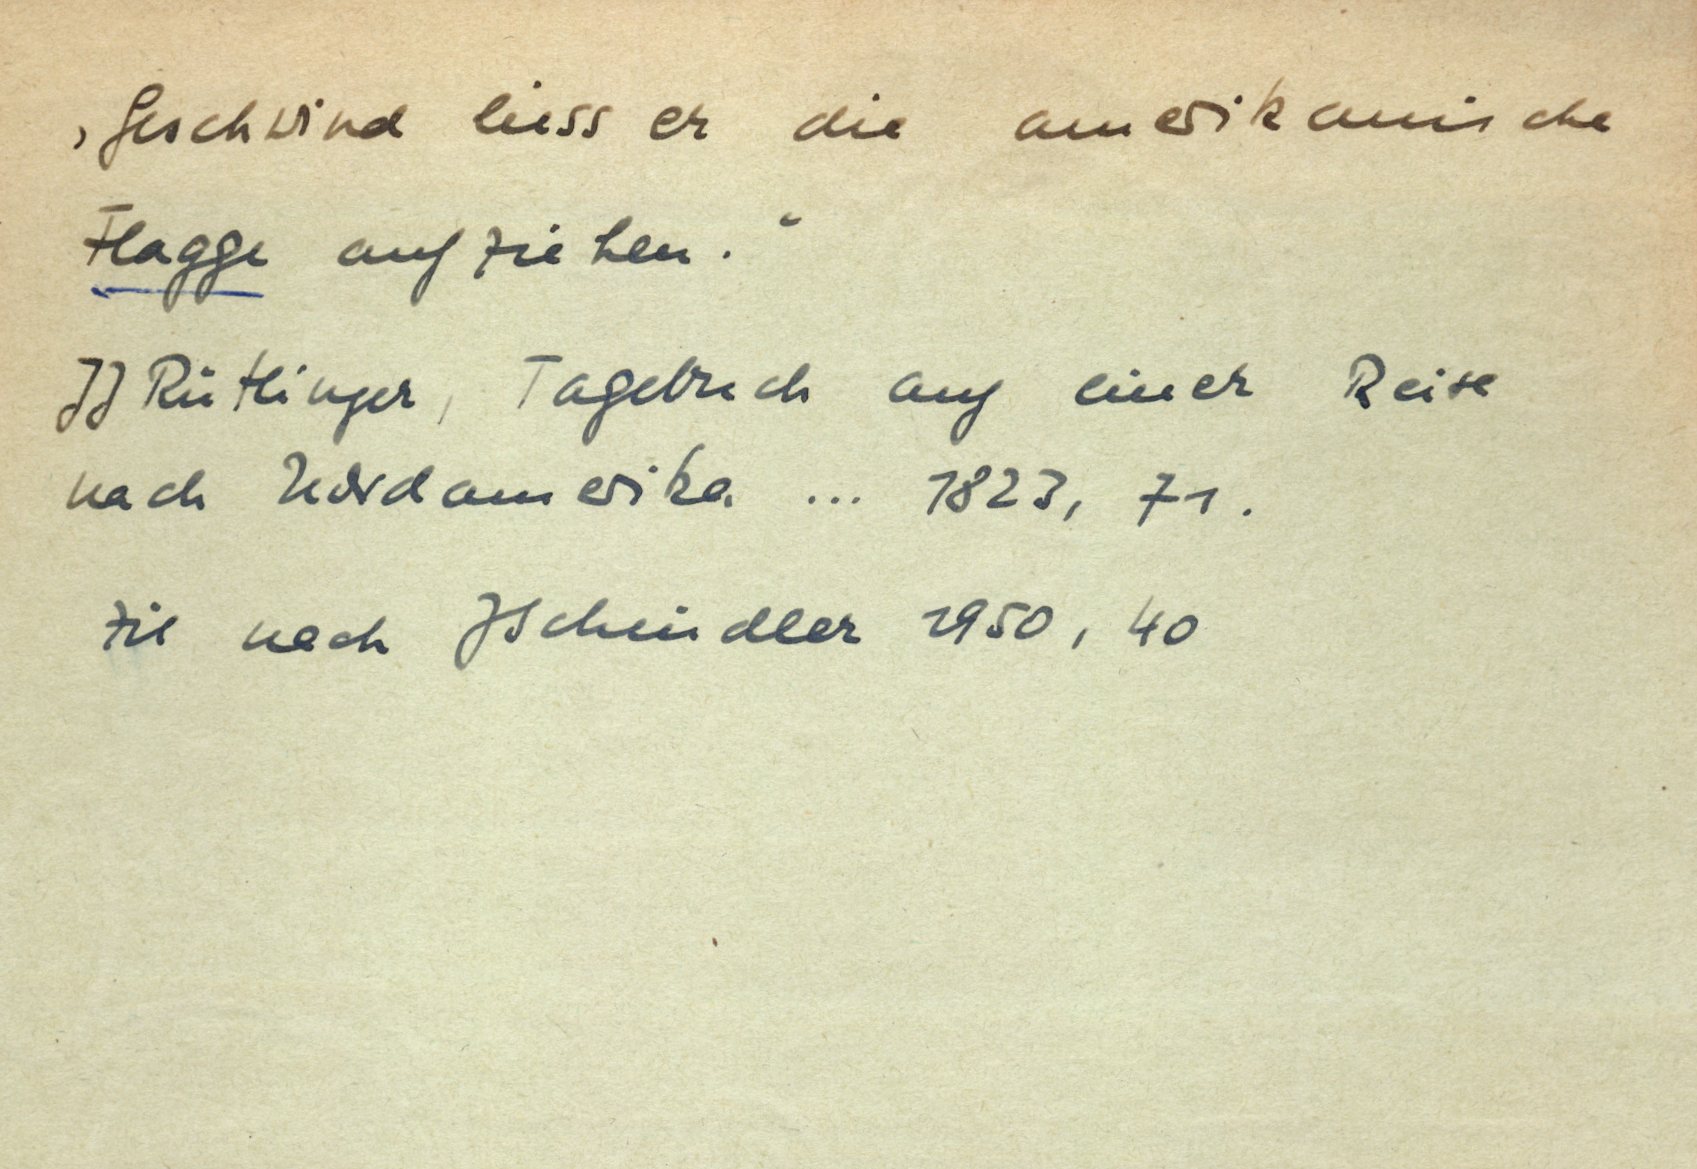 „Geschwind liess er die amerikanische
Flagge aufziehen.“
JJ Rütlinger, Tagebuch auf einer Reise
nach Nordamerika ... 1823, 71.
zit nach JSchindler 1950, 40